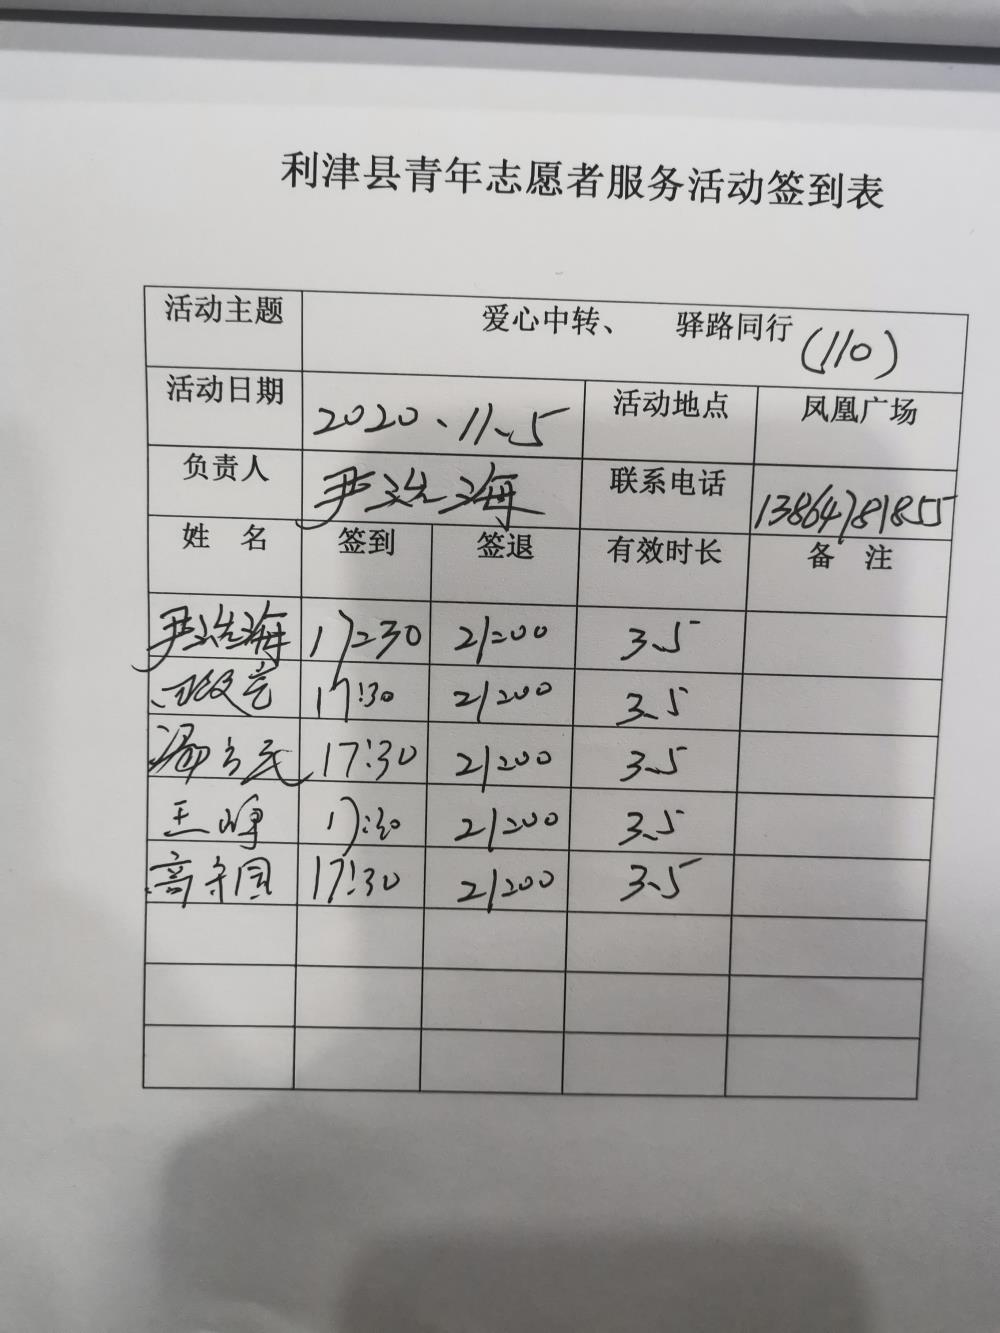 利津县青年志愿者服务活动签到表
活动主题 爱心中转、 驿路同行 (110)
活动日期 2020.11.5 活动地点 凤凰广场
负责人 尹海 联系电话 13864781855
姓 名 签到 签退 有效时长 备 注
尹海 17:30 21:00 3.5
17:30 21:00 3.5
17:30 21:00 3.5
王峰 17:30 21:00 3.5
高守国 17:30 21:00 3.5